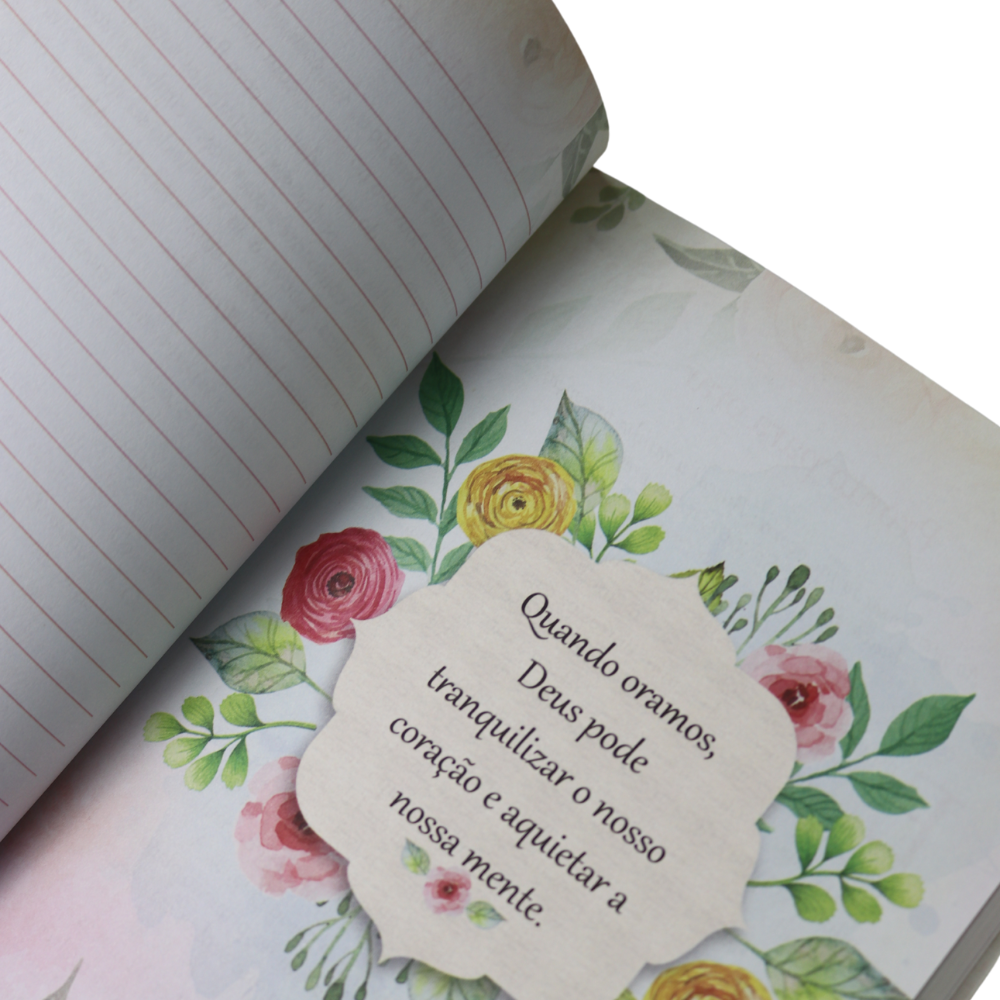 Quando oramos,
Deus pode
tranquilizar o nosso
coração e aquietar a
nossa mente.